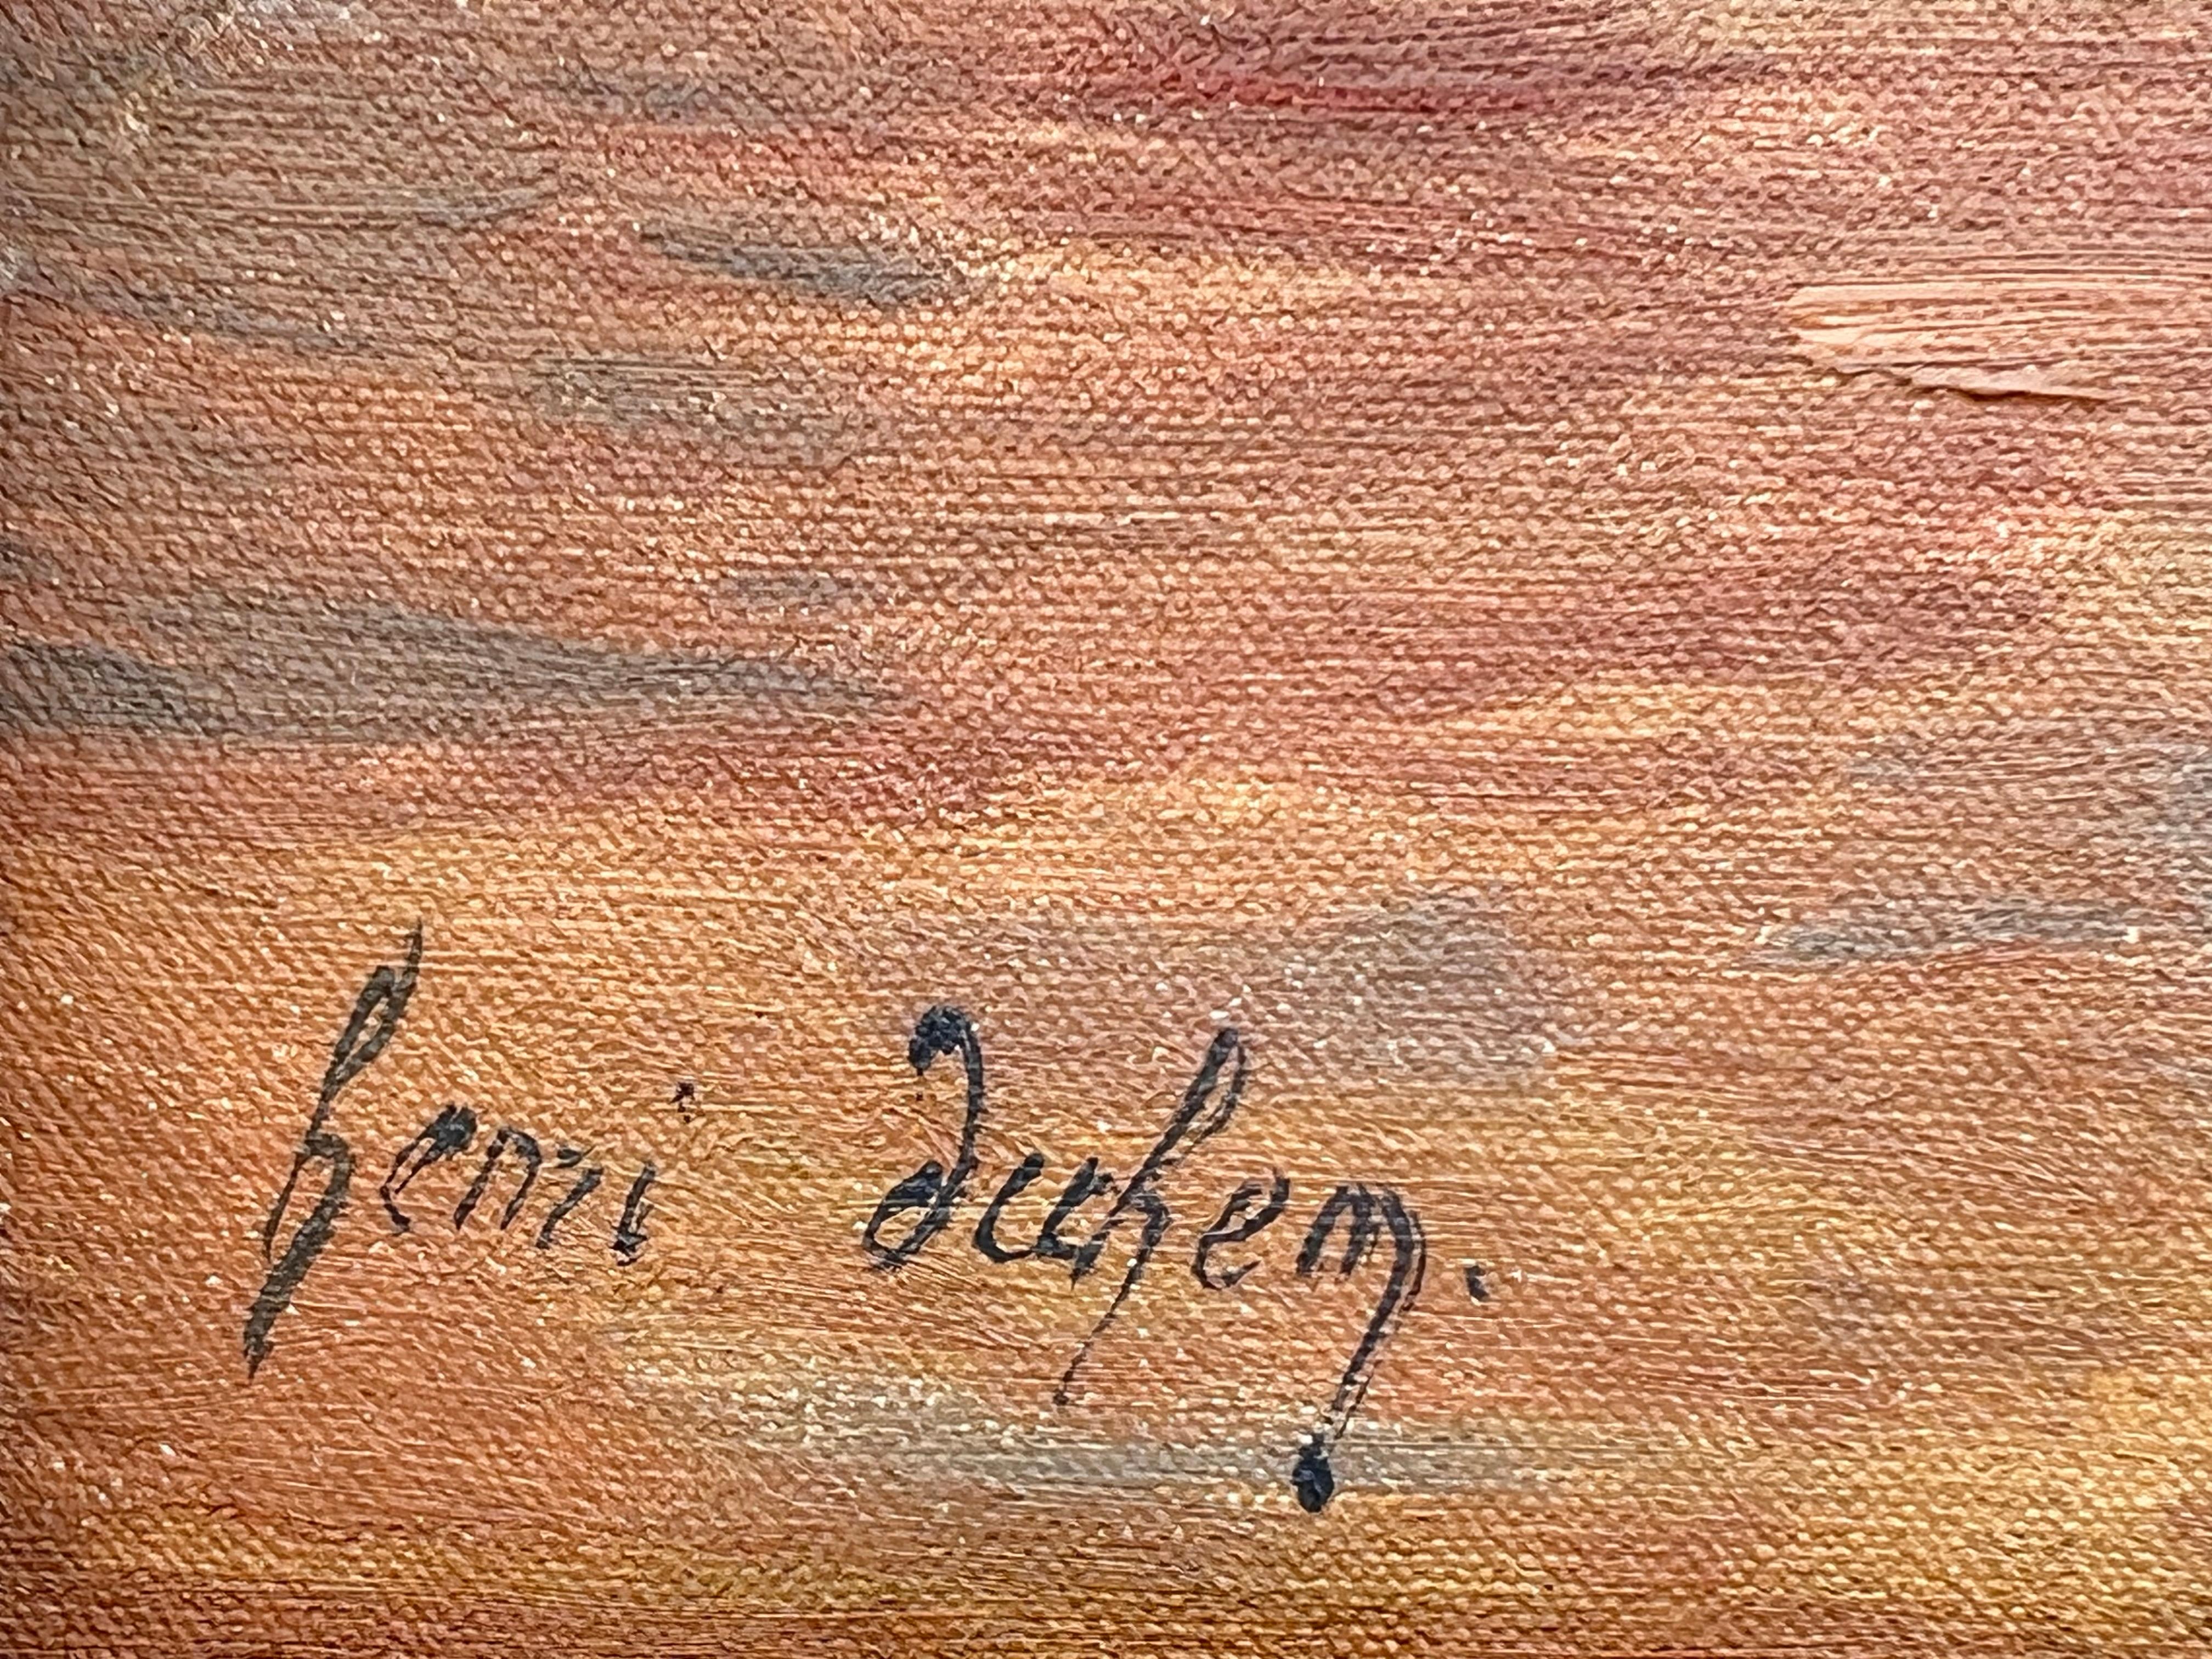 henri duhem.